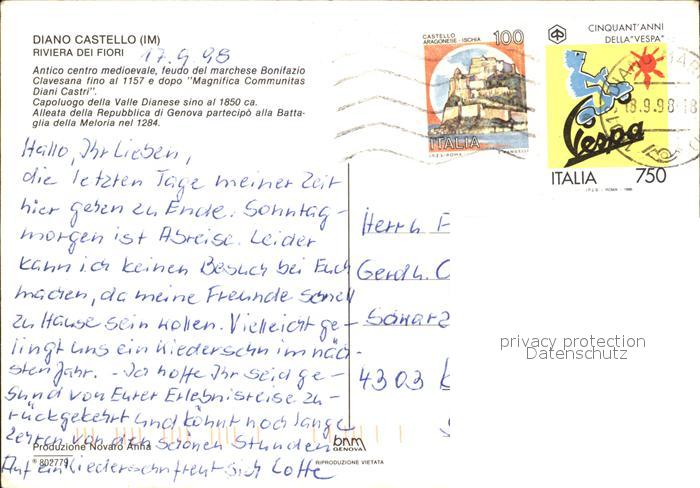 DIANO CASTELLO (IM)
RIVIERA DEI FIORI
17.9.98
Antico centro medioevale, feudo del marchese Bonifazio
Clavesana fino al 1157 e dopo "Magnifica Communitas
Diani Castri".
Capoluogo della Valle Dianese sino al 1850 ca.
Alleata della Repubblica di Genova partecipò alla Batta-
glia della Meloria nel 1284.
CASTELLO
ARAGONESE - ISCHIA
100
ITALIA
I.P.Z.S. - ROMA
CINQUANT'ANNI
DELLA "VESPA"
18.9.98-18
Vespa
ITALIA 750
I.P.Z.S. - ROMA - 1996
Hallo, Ihr Lieben,
die letzten Tage meiner Zeit
hier gehen zu Ende. Sonntag-
morgen ist Abreise. Leider
kann ich keinen Besuch bei Euch
machen, da meine Freunde schnell
zu Hause sein wollen. Vielleicht ge-
lingt uns ein Wiedersehn im näch-
sten Jahr. - Ich hoffe Ihr seid ge-
sund von Eurer Erlebnisreise zu-
rückgekehrt und könnt noch lange
zehren von den schönen Stunden
Auf ein Wiedersehn freut sich Lotte
Herrn F
Gerdh. C
Schwarz
4303 K
privacy protection
Datenschutz
Produzione Novaro Anna
® 802779
bnm
GENOVA
RIPRODUZIONE VIETATA